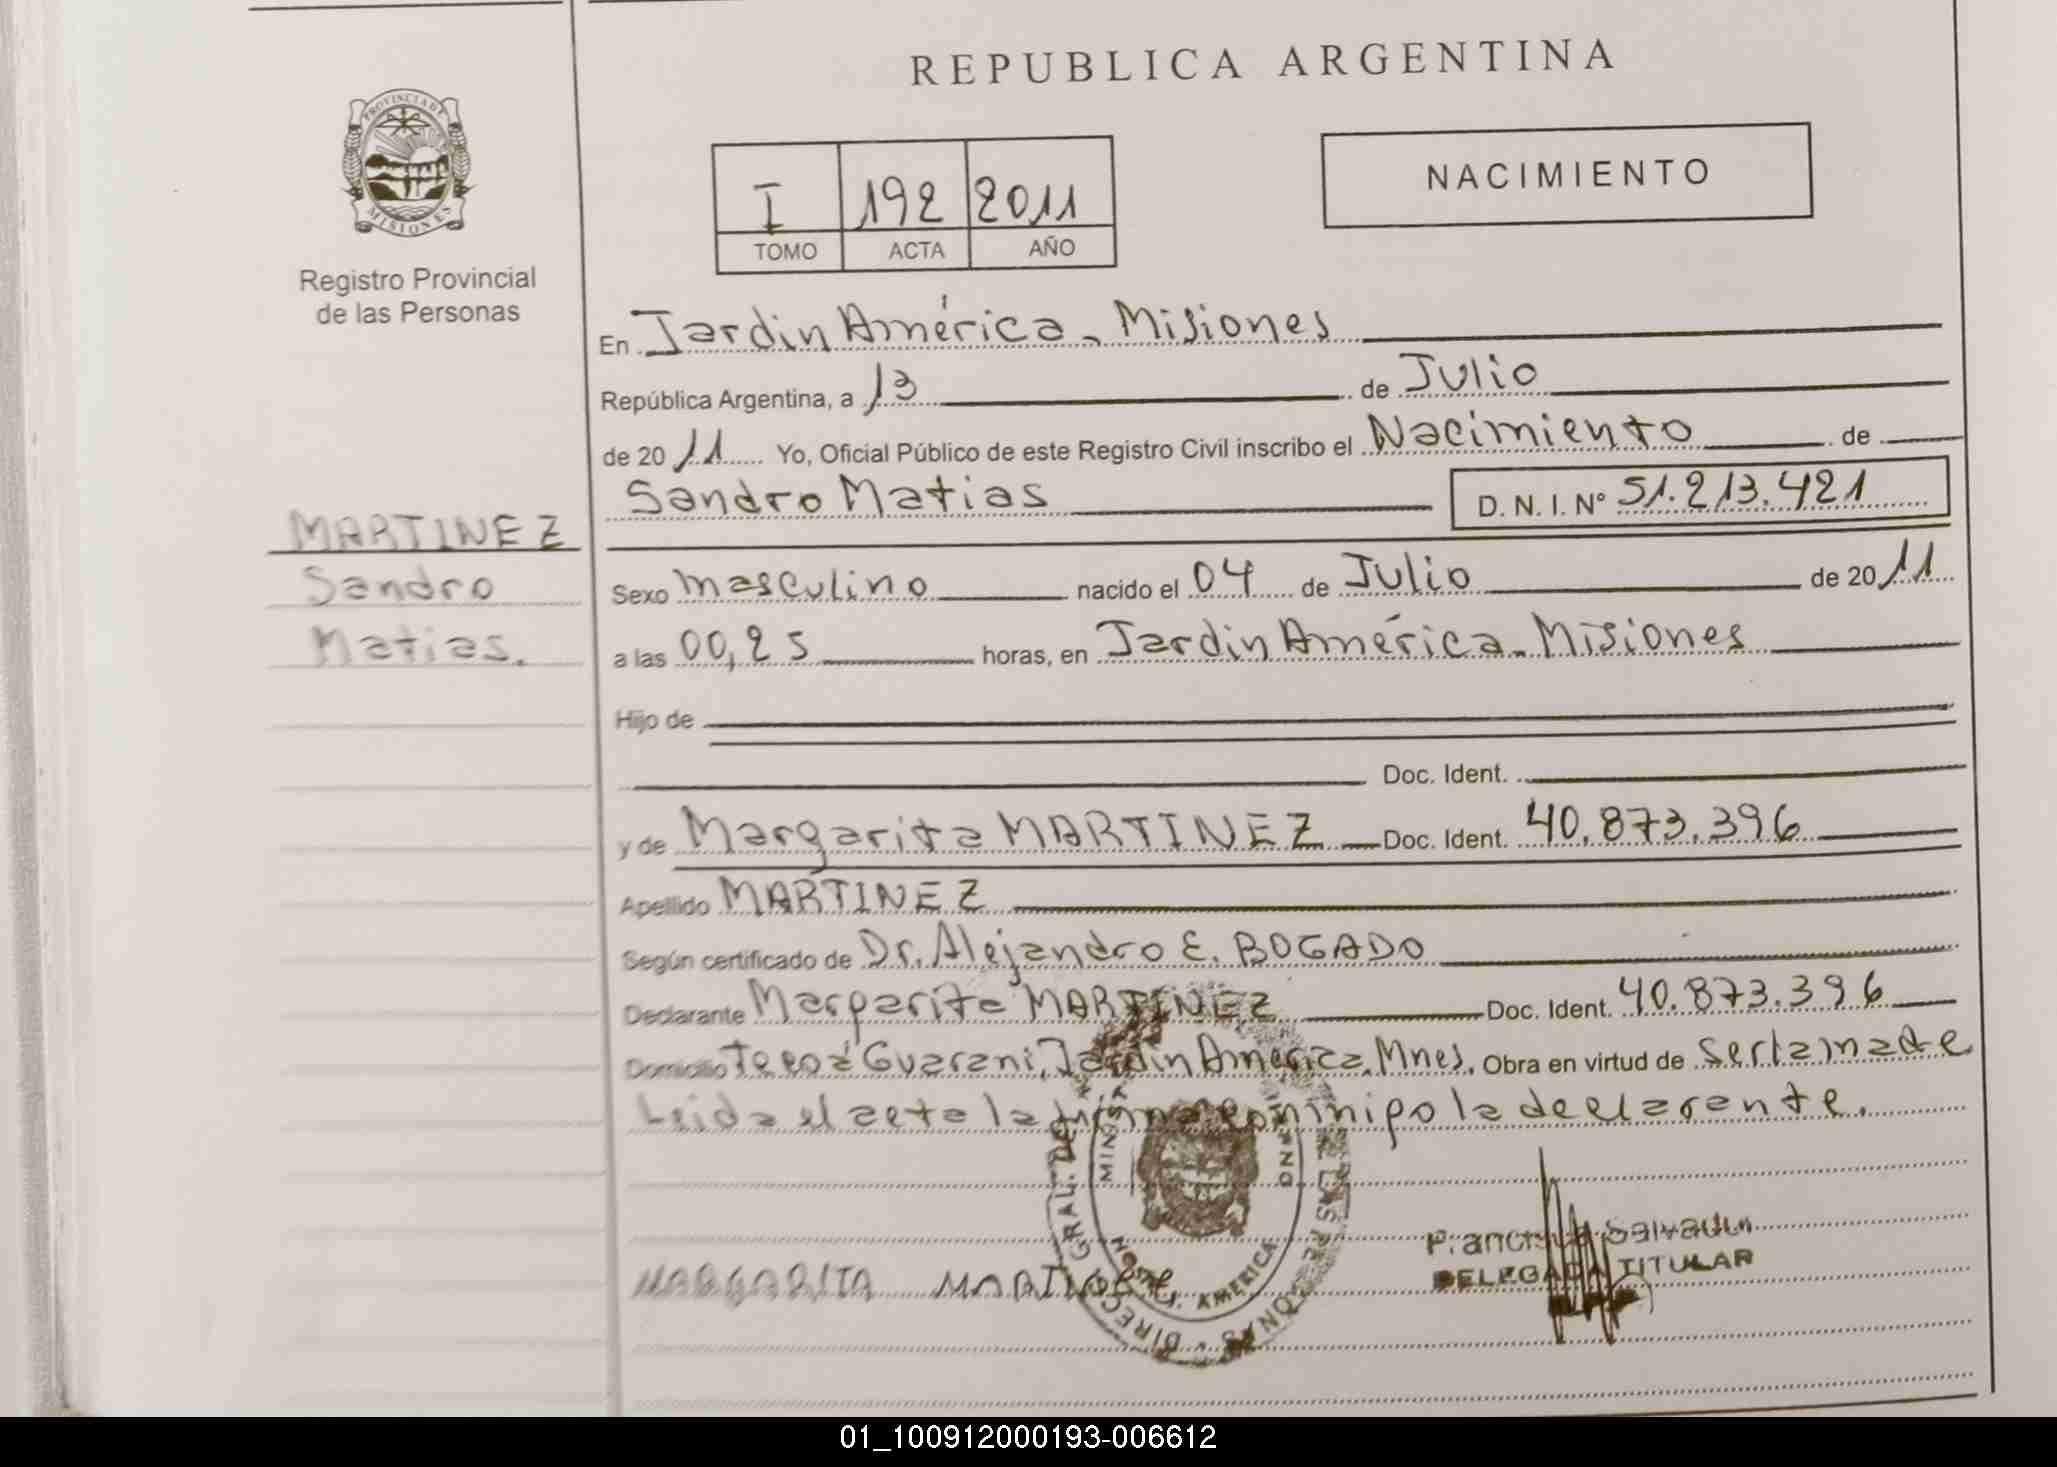 REPUBLICA ARGENTINA
PROVINCIA DE
MISIONES
Registro Provincial
de las Personas
I 192 2011
TOMO ACTA AÑO
NACIMIENTO
En Jardin América - Misiones
República Argentina, a 13 de Julio
de 2011 Yo, Oficial Público de este Registro Civil inscribo el Nacimiento de
Sandro Matias D. N. I. Nº 51.213.421
MARTINEZ
Sandro
Matias.
Sexo masculino nacido el 04 de Julio de 2011
a las 00,25 horas, en Jardin América - Misiones
Hijo de
Doc. Ident.
y de Margarita MARTINEZ Doc. Ident. 40.873.396
Apellido MARTINEZ
Según certificado de Dr. Alejandro E. BOGADO
Declarante Margarita MARTINEZ Doc. Ident. 40.873.396
Domicilio Guarani, Jardin America, Mnes. Obra en virtud de
Leida el acta la firma la declarante.
MARGARITA MARTINEZ
DELEGADA TITULAR
AMERICA
01_100912000193-006612